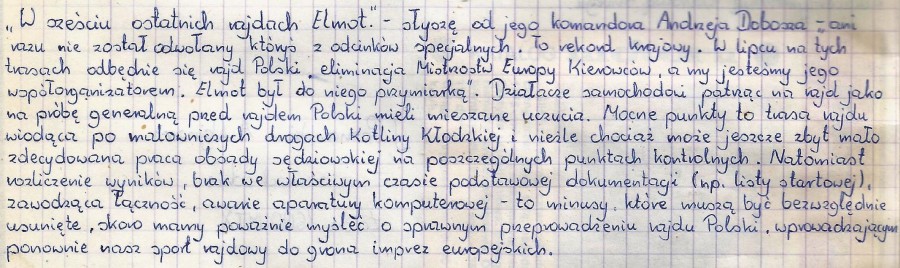 „W sześciu ostatnich rajdach Elmot." - słyszę od jego komandora Andrzeja Dobosza - ani
razu nie został odwołany któryś z odcinków specjalnych. To rekord krajowy. W lipcu na tych
trasach odbędnie się rajd Polski, eliminacja Mistrostw Europy Kierowców, a my jesteśmy jego
współorganizatorem. Elmot był do niego przymiarką". Działacze samochodowi patrząc na rajd jako
na próbę generalną pred rajdem Polski mieli mieszane uczucia. Mocne punkty to trasa rajdu
wiodąca po malowniczych drogach Kotliny Kłodzkiej i nieźle chociaż może jeszcze zbyt mało
zdecydowana praca obsady sędziowskiej na poszczególnych punktach kontrolnych. Natomiast
rozliczenie wyników, brak we właściwym czasie podstawowej dokumentacji (np. listy startowej),
zawodząca łączność, awarie aparatury komputerowej - to minusy, które muszą być bezwzględnie
usunięte, skoro mamy poważnie myśleć o sprawnym przeprowadzeniu rajdu Polski, wprowadzającym
ponownie nasz sport rajdowy do grona imprez europejskich.